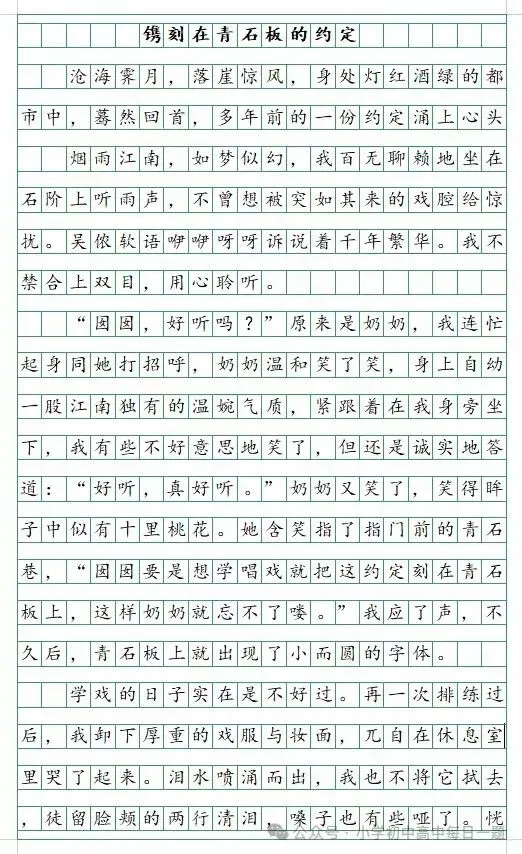 镌刻在青石板的约定
沧海霁月，落崖惊风，身处灯红酒绿的都
市中，蓦然回首，多年前的一份约定涌上心头
烟雨江南，如梦似幻，我百无聊赖地坐在
石阶上听雨声，不曾想被突如其来的戏腔给惊
扰。吴侬软语咿咿呀呀诉说着千年繁华。我不
禁合上双目，用心聆听。
“囡囡，好听吗？”原来是奶奶，我连忙
起身同她打招呼，奶奶温和笑了笑，身上自幼
一股江南独有的温婉气质，紧跟着在我身旁坐
下，我有些不好意思地笑了，但还是诚实地答
道：“好听，真好听。”奶奶又笑了，笑得眸
子中似有十里桃花。她含笑指了指门前的青石
巷，“囡囡要是想学唱戏就把这约定刻在青石
板上，这样奶奶就忘不了喽。”我应了声，不
久后，青石板上就出现了小而圆的字体。
学戏的日子实在是不好过。再一次排练过
后，我卸下厚重的戏服与妆面，兀自在休息室
里哭了起来。泪水喷涌而出，我也不将它拭去
，徒留脸颊的两行清泪，嗓子也有些哑了。恍
公众号·小学初中高中每日一题